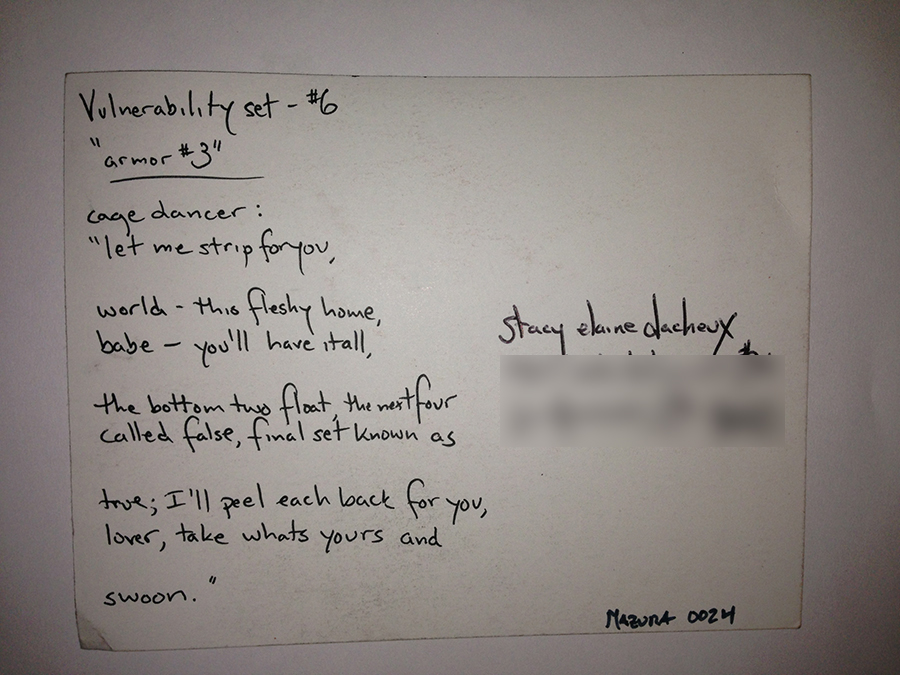 Vulnerability set - #6
"armor #3"
cage dancer:
"let me strip for you,
world - this fleshy home,
babe - you'll have it all,
the bottom two float, the next four
called false, final set known as
true; I'll peel each back for you,
lover, take whats yours and
swoon."
stacy elaine dacheux
MAZURA 0024